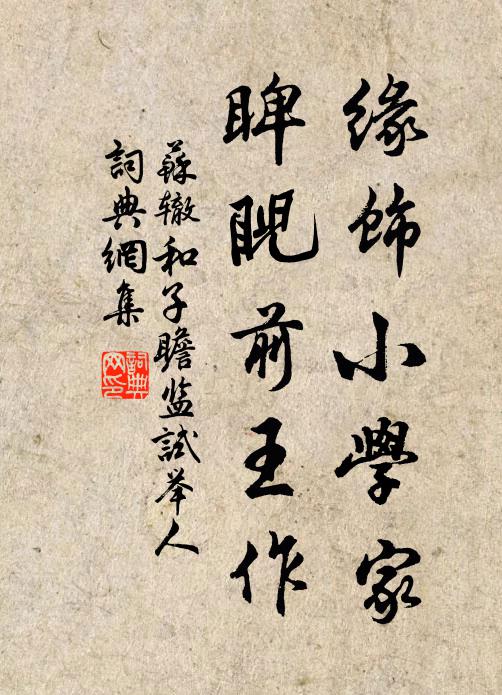 缘饰小學家
睥睨前王作
蘇辙和子瞻监試举人
詞典網集
詞典网印